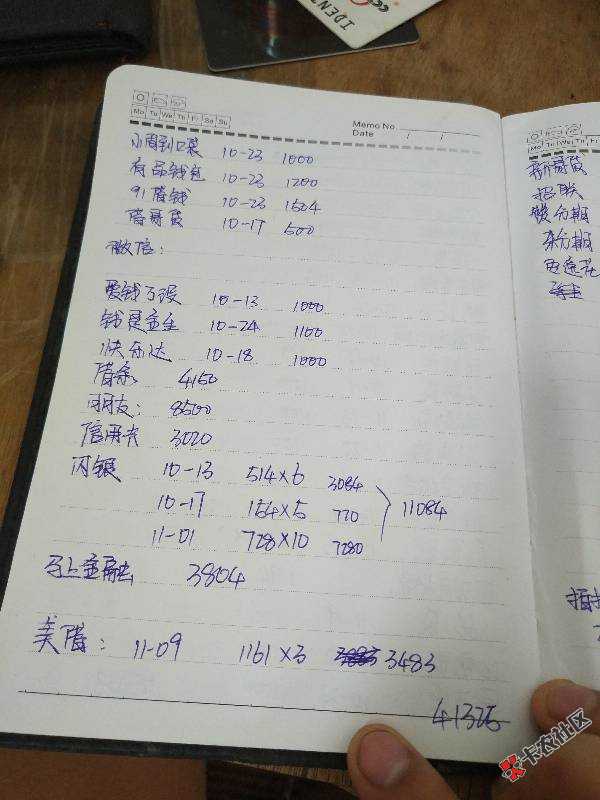 IDENT
Mo Tu We Th Fr Sa Su
Memo No.
Date / /
10-23 1000
有品钱包 10-23 1200
91借钱 10-23 1504
借哥贷 10-17 500
微信:
爱钱万段 10-13 1000
10-24 1100
快乐达 10-18 1000
借条 4150
朋友: 8500
信用卡 3020
闪银 10-13 514×6 3084
10-17 154×5 770
11-01 728×10 7280
11084
马上金融 3804
美借: 11-09 1161×3 3483
41325
Mo Tu We Th Fr Sa
新哥贷
招联
分期
分期
卡农社区